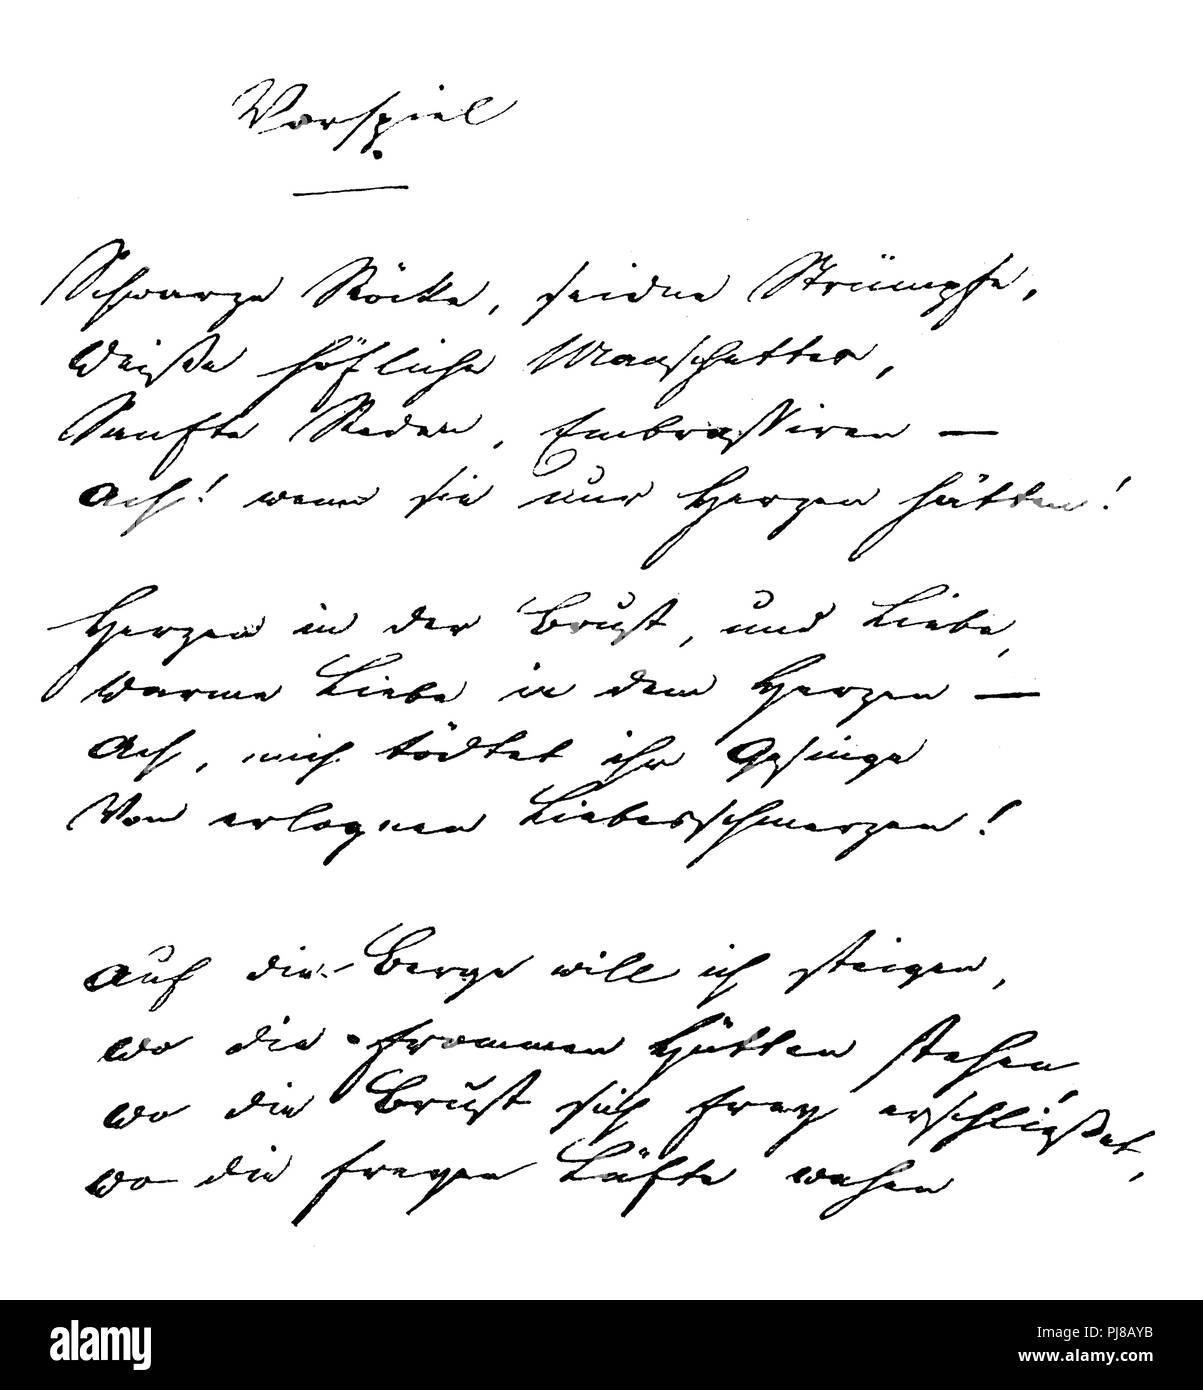 Vorspiel.
Schwarze Röcke, seidne Strümpfe,
Weiße höfliche Manschetten,
Sanfte Reden, Embrassiren —
Ach! wenn sie nur Herzen hätten!
Herzen in der Brust, und Liebe,
warme Liebe in dem Herzen —
Ach, mich tödtet ihr Gesinge
Von erlognen Liebesschmerzen!
Auf die Berge will ich steigen,
wo die frommen Hütten stehen,
wo die Brust sich frey erschließet,
wo die freyen Lüfte wehen
alamy
alamy
Image ID: PJ8AYB
www.alamy.com